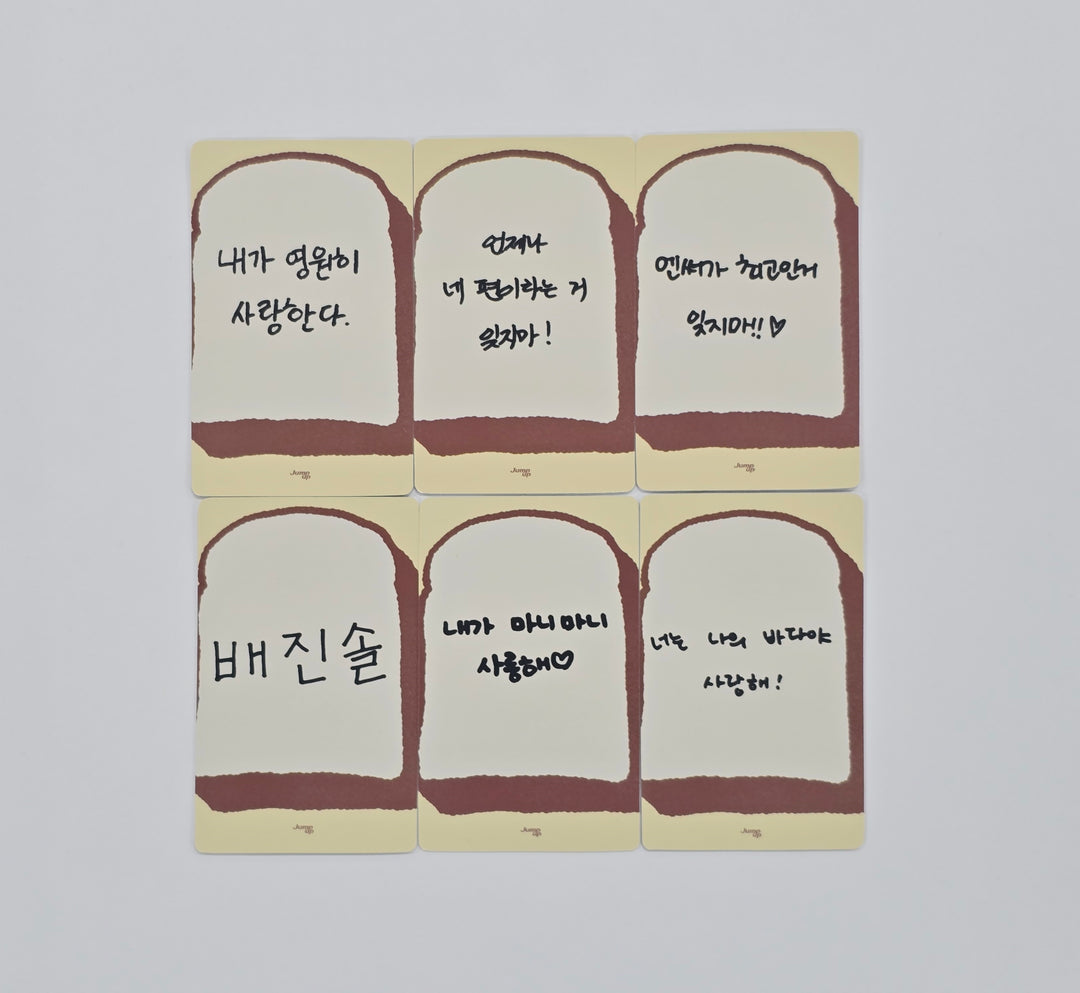 내가 영원히
사랑한다.
Jump up
언제나
네 편이라는 거
잊지마!
Jump up
엔써가 최고인거
잊지마!!♡
Jump up
배진솔
Jump up
내가 마니마니
사룽해♡
Jump up
너는 나의 바다야
사랑해!
Jump up